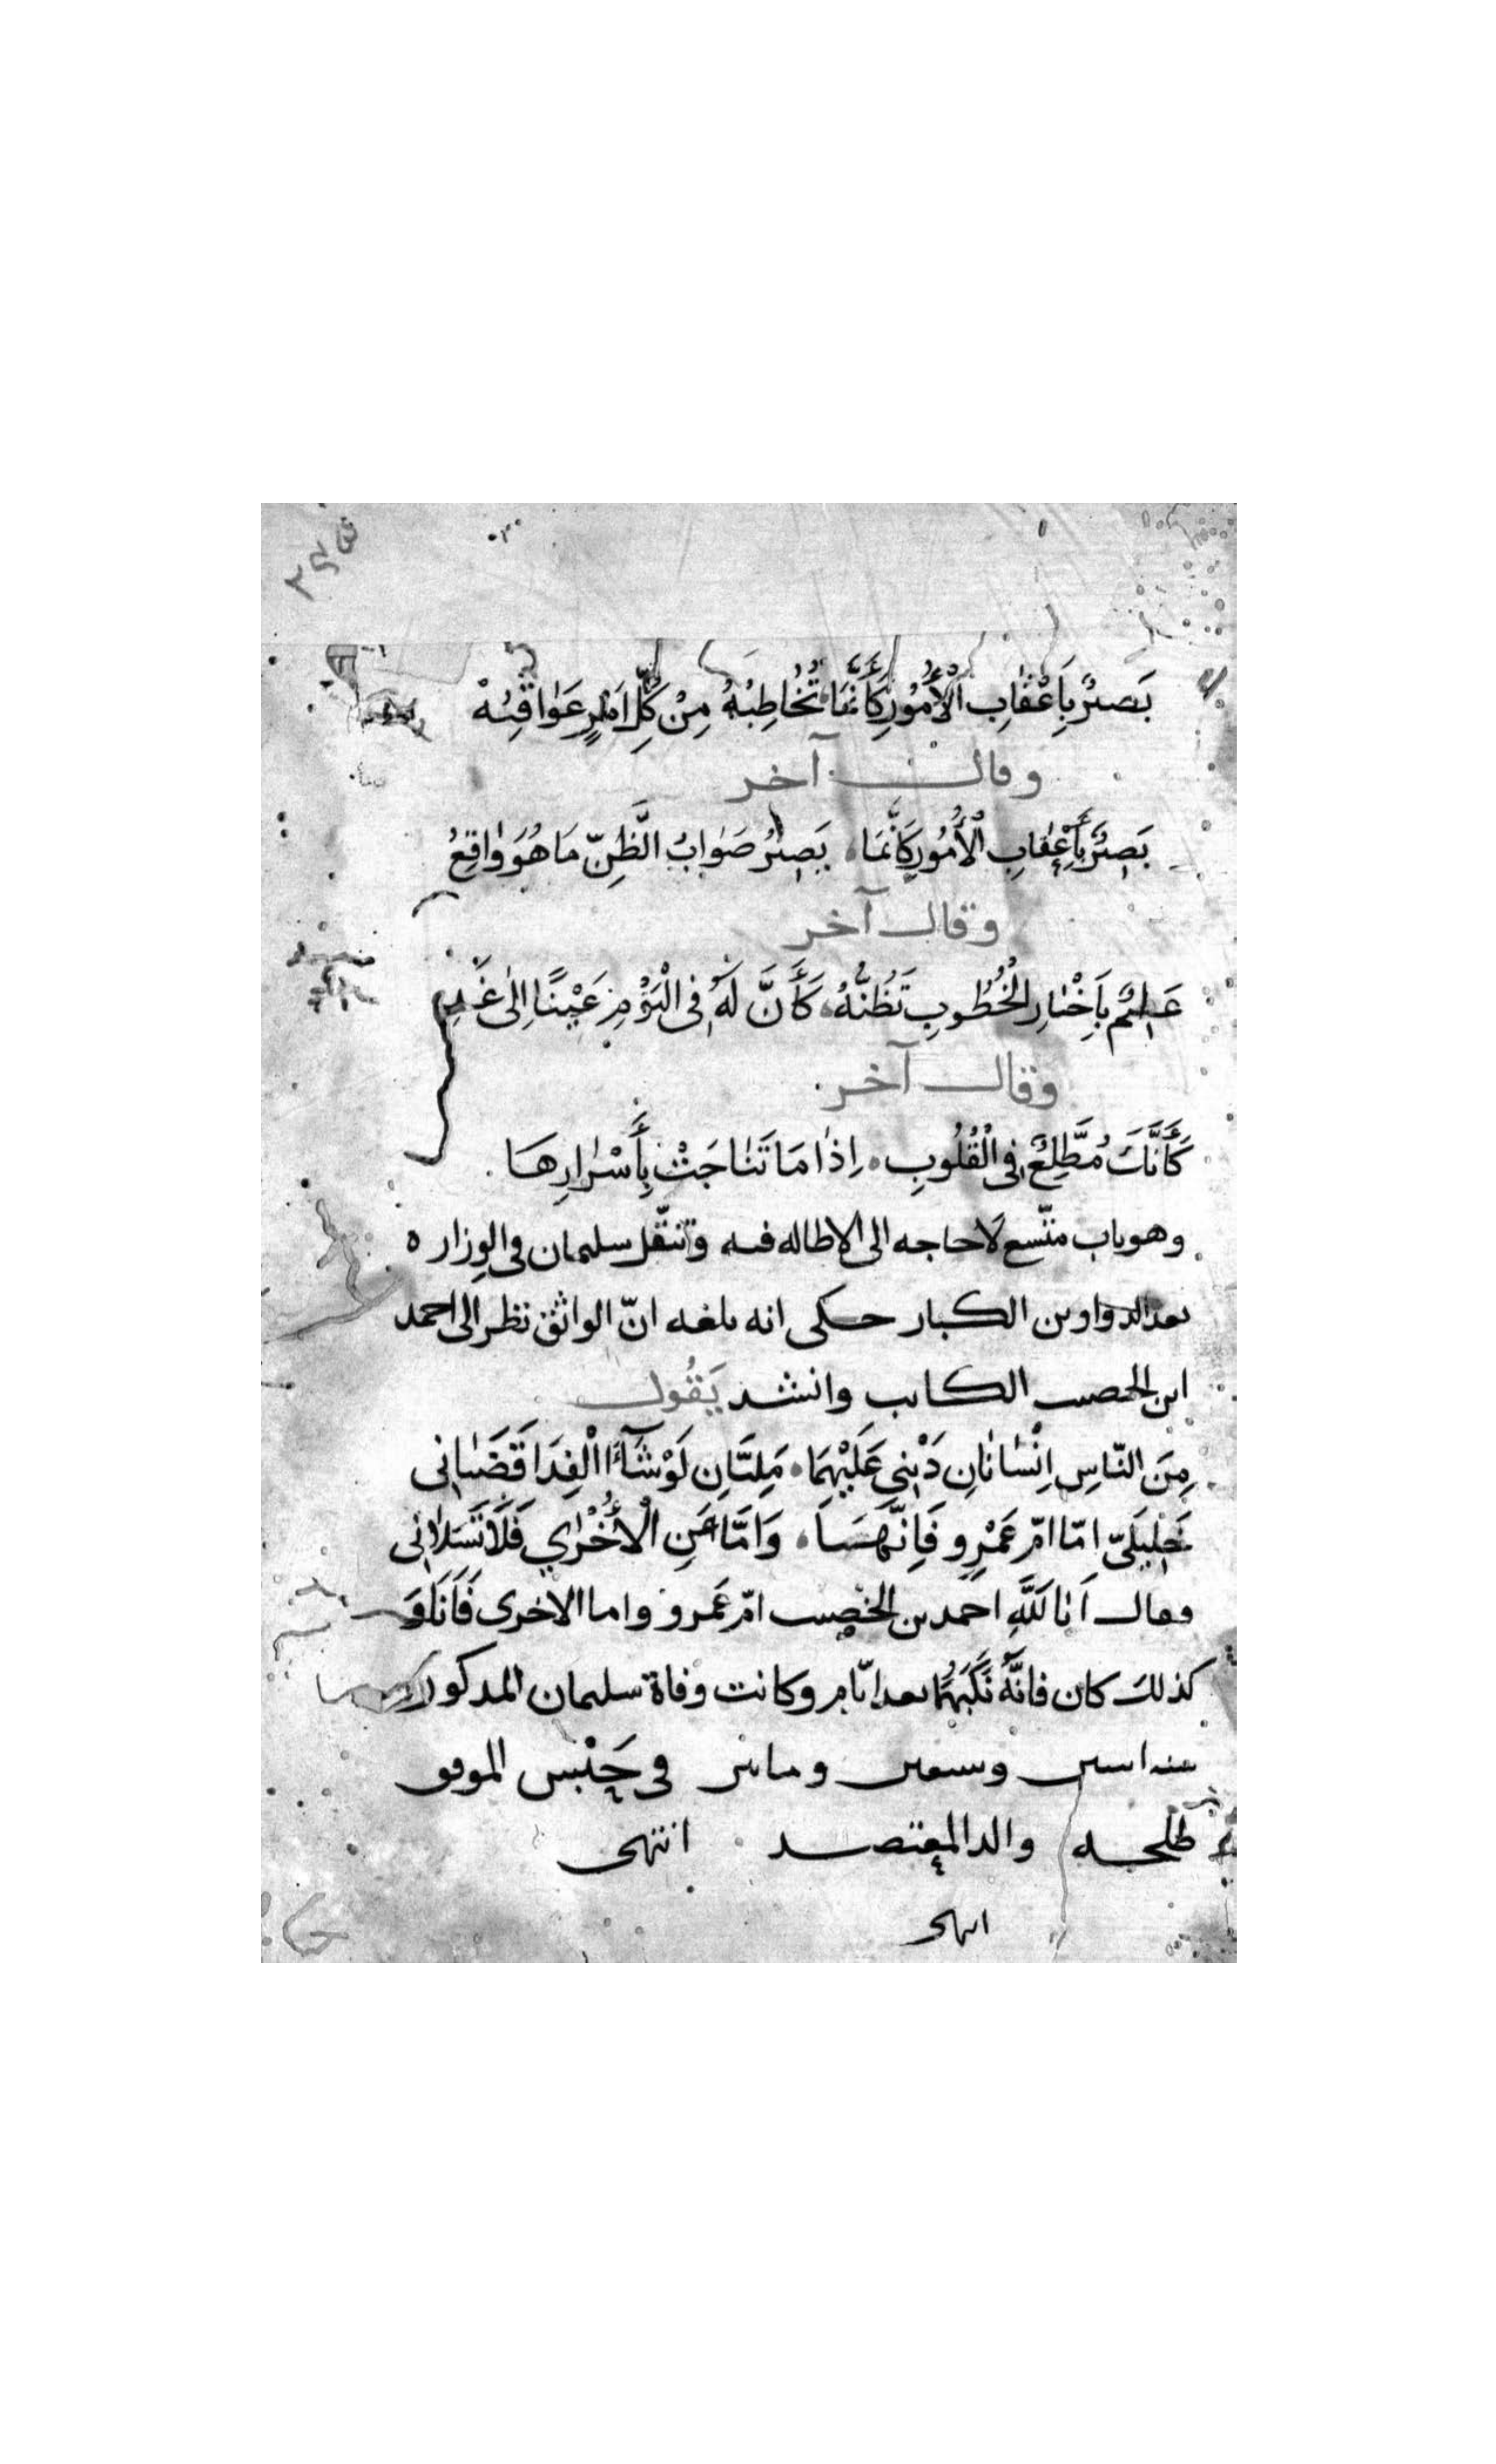 بَصِيرٌ بِاَعْقٰابِ الْأُمُورِ كَأَنَّمَا تُخٰاطِبُهُ مِنْ كُلِّ اَمْرٍ عَوٰاقِبُهْ
وقال آخر
بَصِيرٌ بِأَعْقٰابِ الْأُمُورِ كَأَنَّمَا يَصِيرُ صَوٰابُ الظَّنِّ مَا هُوَ وٰاقِعُ
وقال آخر
عَلِيمٌ بِاَخْبٰارِ الْخُطُوبِ تَظُنُّهُ كَأَنَّ لَهُ فِى الْيَوْمِ عَيْنًا اِلٰى غَدِ
وقال آخر
كَأَنَّكَ مُطَّلِعٌ فِى الْقُلُوبِ اِذٰا مَا تَنٰاجَتْ بِأَسْرٰارِهَا
وهو باب متّسع لَا حاجه الى الاطاله فيه وتنقّل سليمان فى الوزاره
بعد الدواوين الكبار حكى انه بلغه انّ الواثق نظر الى احمد
ابن الخصيب الكاتب وانشد يَقُول
مِنَ النّاسِ اِنْسٰانٰانِ دَيْنِى عَلَيْهِمَا مَلِيّٰانِ لَوْ شَآءَا الْفِدَا قَضَيٰانِى
خَلِيلَىّ امّا امّ عَمْرٍو فَاِنَّهَسَا وَامَّا عَنِ الْأُخْرٰي فَلَا تَسَلٰانِى
فقال اَنا لَلّهِ احمد بن الخصيب امّ عَمرو واما الاخرى فَاَنَا وَ
كذلك كان فانَّهُ نَكَبَهُمَا بعد ايّام وكانت وفاة سليمان المذكور
سنه اثنين وسبعين ومايتين فى حَبْس الموفق
طلحه والد المعتضد انتهى
انتهى